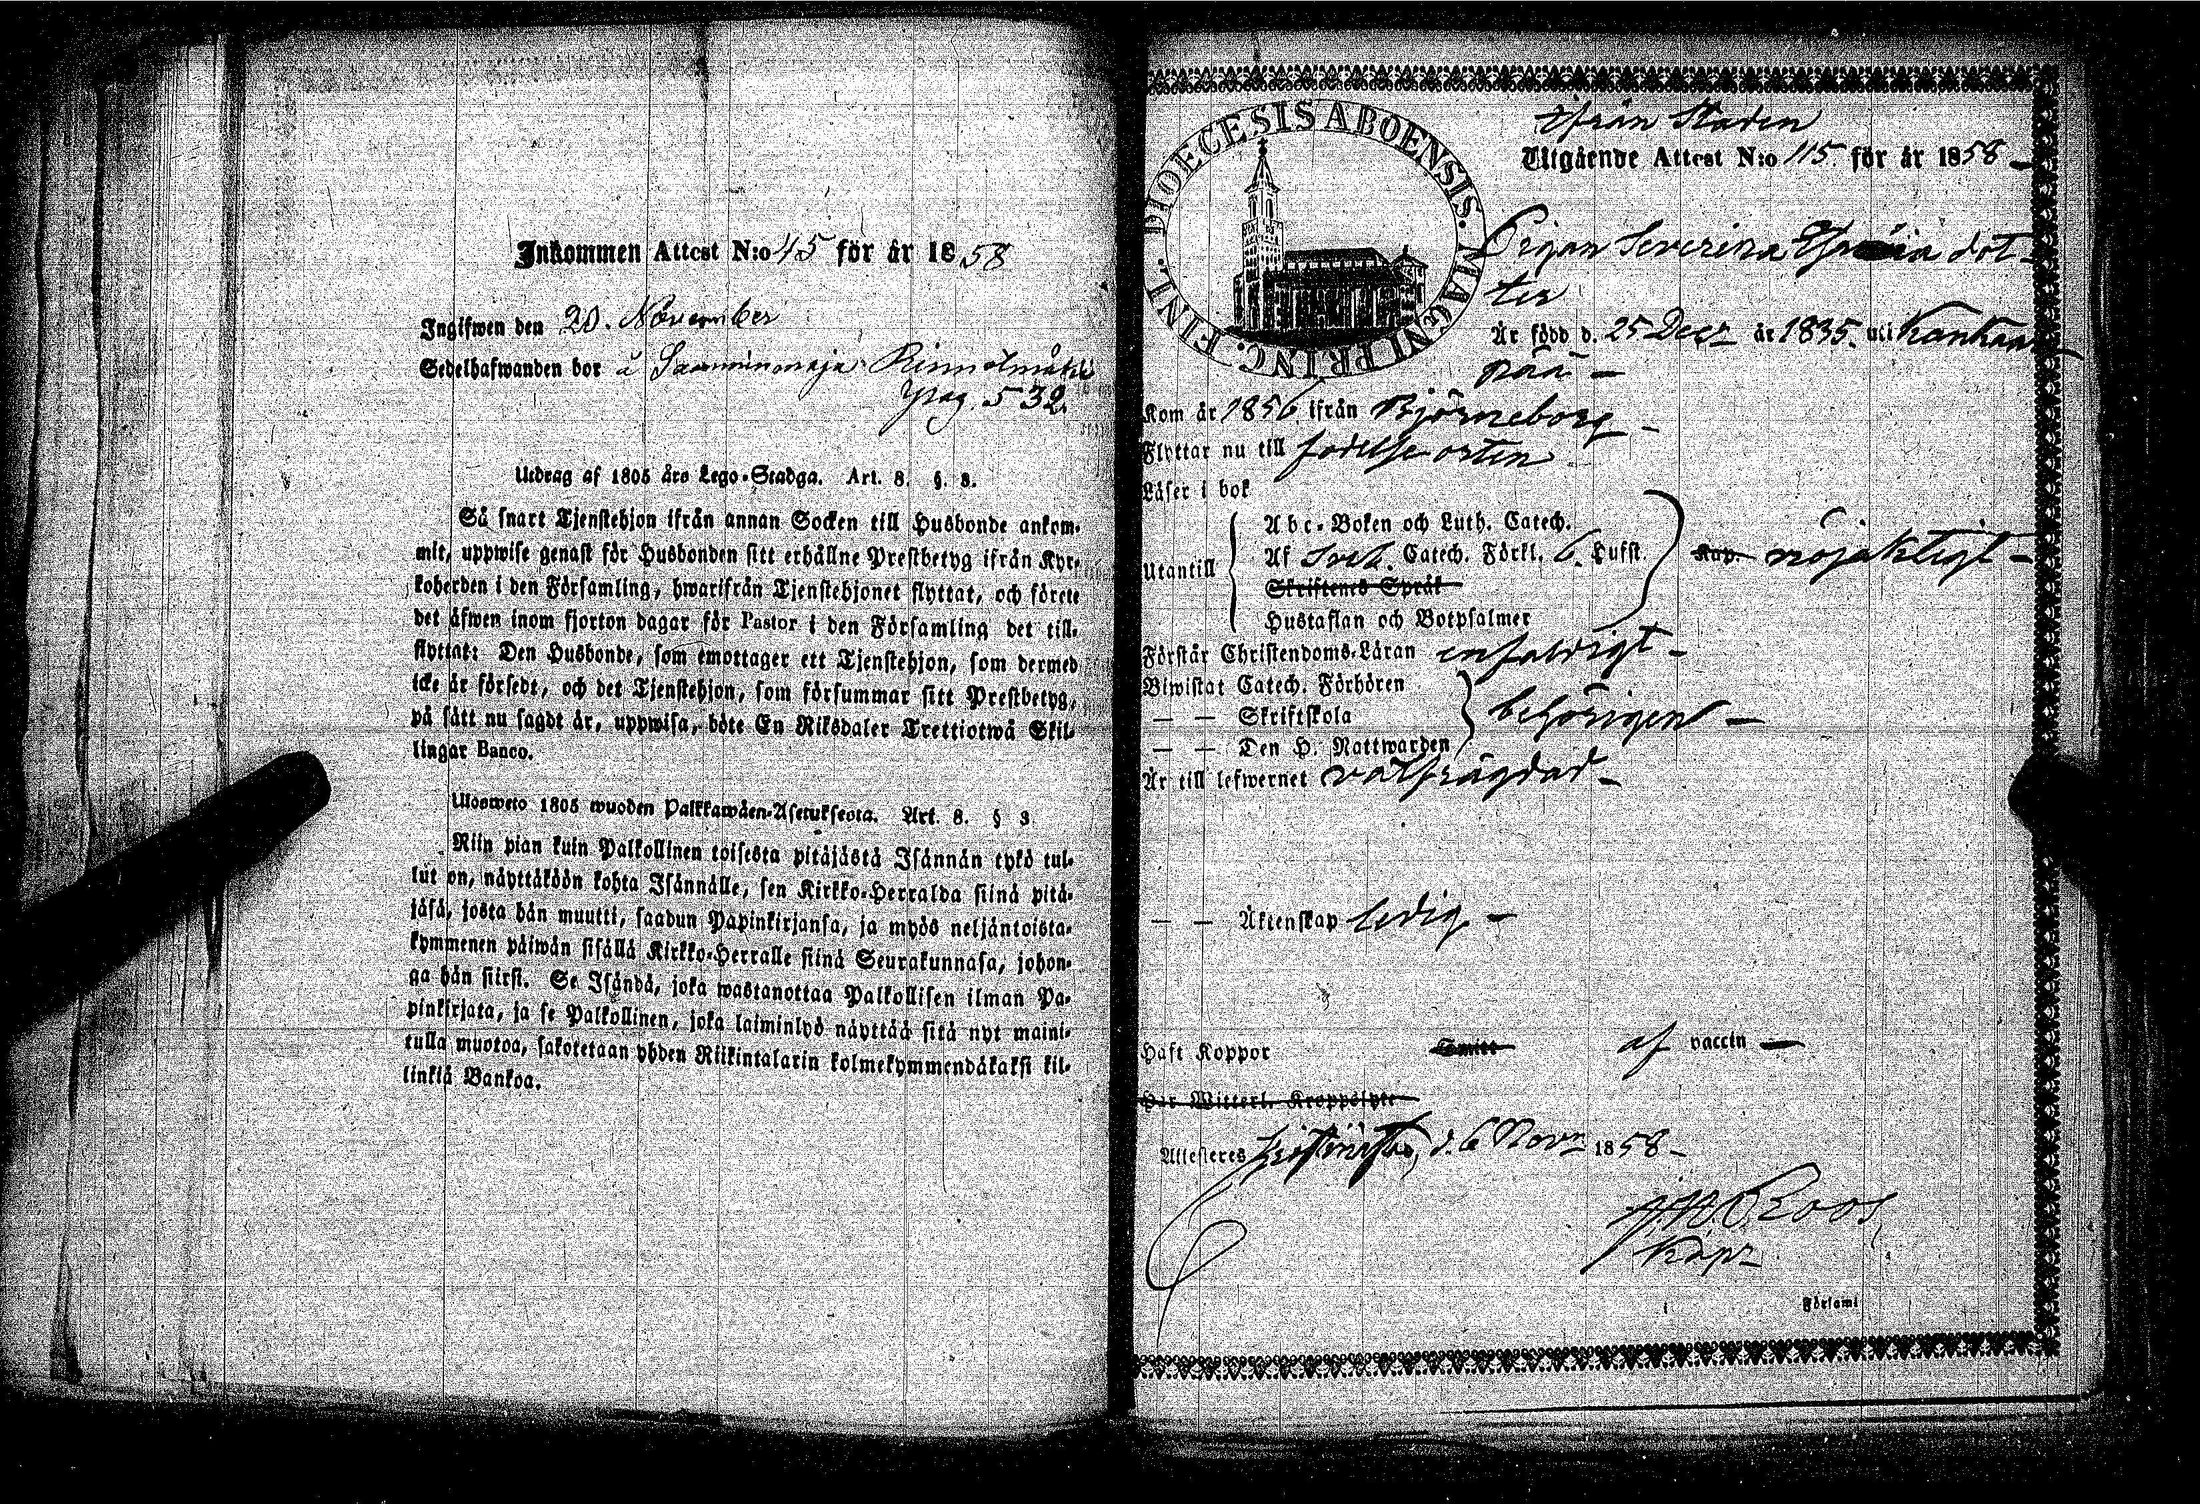 Inkommen Attest N:o 45 för år 1858
Ingifwen den 20. November
Sedelhafwanden bor å
pag. 532.
Utdrag af 1805 års Lego-Stadga. Art. 8. §. 3.
Så snart Tjenstehjon ifrån annan Socken till Husbonde ankom-
mit, uppwise genast för Husbonden sitt erhållne Prestbetyg ifrån Kyr-
koherden i den Församling, hwarifrån Tjenstehjonet flyttat, och förete
det äfwen inom fjorton dagar för Pastor i den Församling det till-
flyttat: Den Husbonde, som emottager ett Tjenstehjon, som dermed
icke är försedt, och det Tjenstehjon, som försummar sitt Prestbetyg,
på sätt nu sagdt är, uppwisa, böte En Riksdaler Trettiotwå Skil-
lingar Banco.
Ulosweto 1805 wuoden Palkkawäen-Asetuksesta. Art. 8. § 3
Niin pian kuin Palkollinen toisesta pitäjästä Isännän tykö tul-
lut on, näyttäköön kohta Isännälle, sen Kirkko-Herralda siinä pitä-
jäsä, josta hän muutti, saadun Papinkirjansa, ja myös neljäntoista-
kymmenen päiwän sisällä Kirkko-Herralle siinä Seurakunnasa, johon-
ga hän siirsi. Se Isändä, joka wastanottaa Palkollisen ilman Pa-
pinkirjata, ja se Palkollinen, joka laiminlyö näyttää sitä nyt maini-
tulla muotoa, sakotetaan yhden Riikintalarin kolmekymmendäkaksi kil-
linkiä Bankoa.
DIOECESIS ABOENSIS. MAGNI PRINC. FINL.
Ifrån Staden
Utgående Attest N:o 115. för år 1858
Pigan Severina dot-
ter
Är född d. 25 Decr år 1835. uti Kankaan
pää
Kom år 1856 ifrån Björneborg
Flyttar nu till födelse orten
Läser i bok
Abc-Boken och Luth. Catech.
Utantill Af Sveb. Catech. Förkl. 6. Hufst. Kap. nöjaktigt
Skriftenes Språk
Hustaflan och Botpsalmer
Förstår Christendoms-Läran enfaldigt
Biwistat Catech. Förhören
— — Skriftskola behörigen
— — Den H. Nattwarden
Är till lefwernet välfrägdad
— — Äktenskap ledig
Haft Koppor Smitt af vaccin
Har Witterl. Kroppslyte
Attesteres d. 6 Novr 1858
Roos
Kapr
i Församl